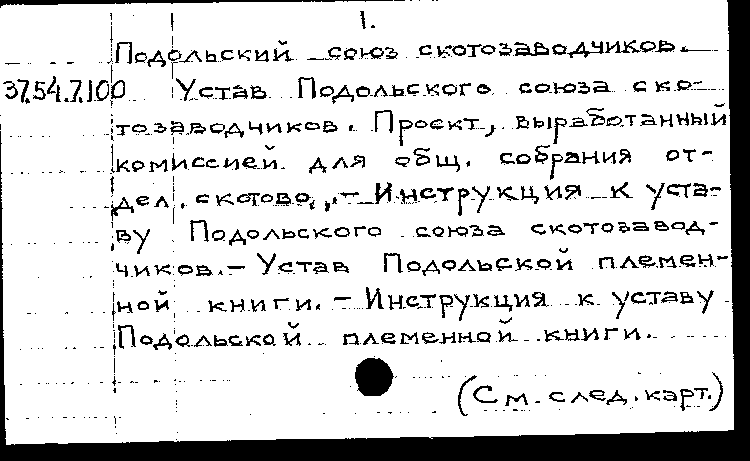 1.
Подольский союз скотозаводчиков.
37.54.7.100 Устав Подольского союза ско-
тозаводчиков. Проект, выработанный
комиссией для общ. собрания от-
дел. скотово,,- Инструкция к уста-
ву Подольского союза скотозавод-
чиков.- Устав Подольской племен-
ной книги.- Инструкция к уставу
Подольской племенной книги.
(См. след. карт.)